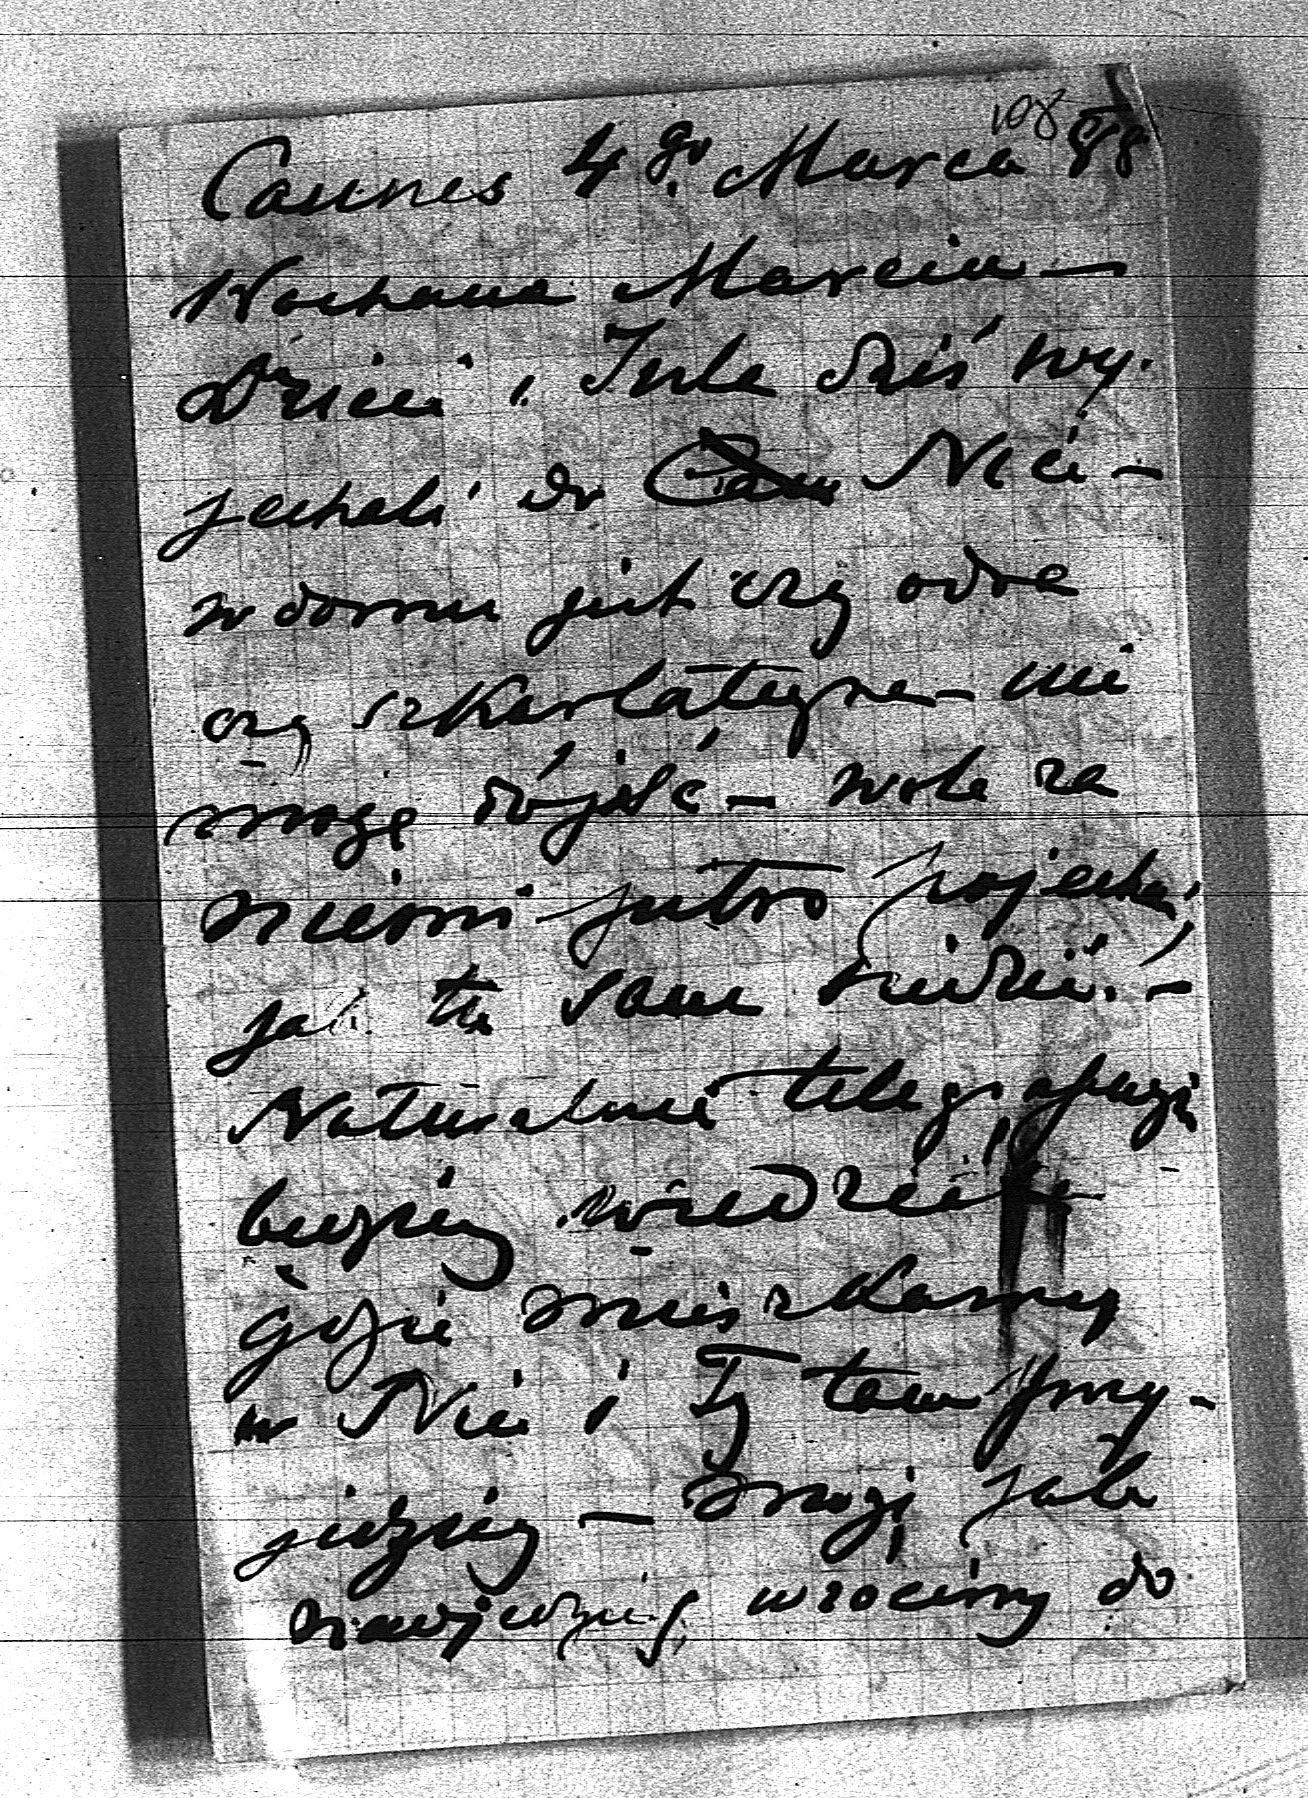 108
Cannes 4go Marca 88
Kochana Marciu —
Dzieci i Jula dziś wy-
jechali do Nici —
w domu jest czy odra
czy szkarlatyna — nie
mogę dojść — wolę za
niemi jutro pojechać,
jak tu sam siedzieć. —
Naturalnie telegrafuję
będziesz wiedzieć
gdzie mieszkamy
w Nici i Ty tam przy-
jedziesz — mogę jak
wrócimy do